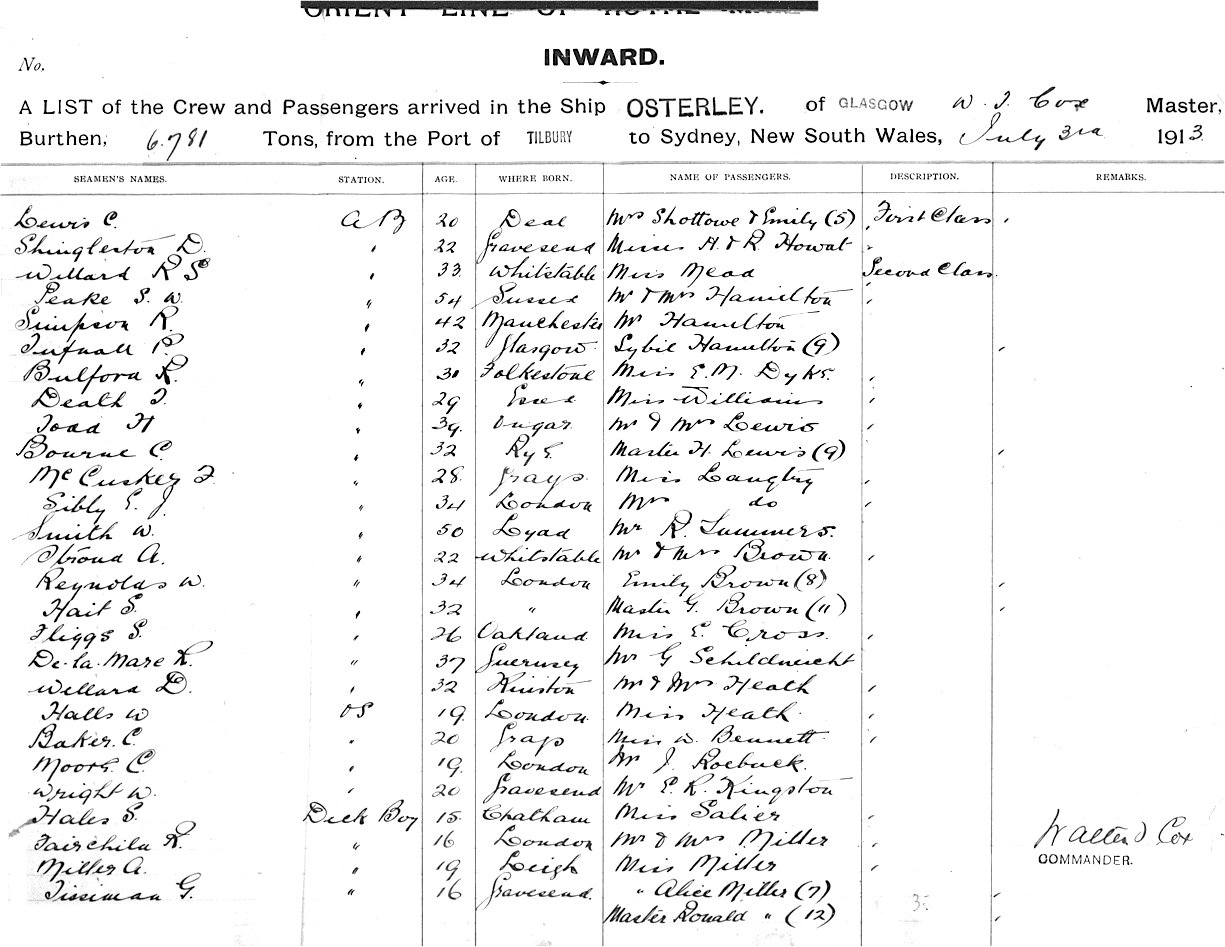 ORIENT LINE OF ROYAL MAIL
INWARD.
No.
A LIST of the Crew and Passengers arrived in the Ship OSTERLEY. of GLASGOW W. J. Cox Master,
Burthen, 6.781 Tons, from the Port of TILBURY to Sydney, New South Wales, July 3rd 1913.
SEAMEN'S NAMES. STATION. AGE. WHERE BORN. NAME OF PASSENGERS. DESCRIPTION. REMARKS.
Lewis C. AB 20 Deal Mrs Shottowe & Emily (5) First Class
Shingleston D. " 22 Gravesend Misses H. & R. Howat "
Willard R S " 33 Whitstable Miss Mead Second Class
Peake S. W " 54 Sussex Mr & Mrs Hamilton "
Simpson R. " 42 Manchester Mr Hamilton
Tufnall P. " 32 Glasgow Sybil Hamilton (9) "
Bulford R. " 30 Folkestone Miss E. M. Dyke. "
Death J. " 29 Essex Miss Williams "
Todd H " 39 Ongar Mr & Mrs Lewis "
Bourne C. " 32 Rye Master H. Lewis (9) "
McCuskey F. " 28 Grays Miss Langtry "
Sibly E. J " 34 London Mrs do "
Smith W. " 50 Lydd Mr R. Summers.
Stroud A. " 22 Whitstable Mr & Mrs Brown "
Reynolds W. " 34 London Emily Brown (8) "
Hait S. " 32 " Master G. Brown (11) "
Fliggs S. " 26 Oakland Miss E. Cross. "
De-la-Mare R. " 37 Guernsey Mr G Schildneicht
Willard D. " 32 Mr & Mrs Heath "
Halls W OS 19 London Miss Heath "
Baker. C. " 20 Grays Miss W. Bennett "
Moore. C. " 19 London Mr J. Roebuck.
Wright W. " 20 Gravesend Mr E. R. Kingston
Hales S. Deck Boy 15 Chatham Miss Salier "
Fairchild R. " 16 London Mr & Mrs Miller "
Walter J Cox
COMMANDER.
Miller A. " 19 Leigh Miss Miller "
Tissiman G. " 16 Gravesend. " Alice Miller (7) "
Master Ronald " (12) "